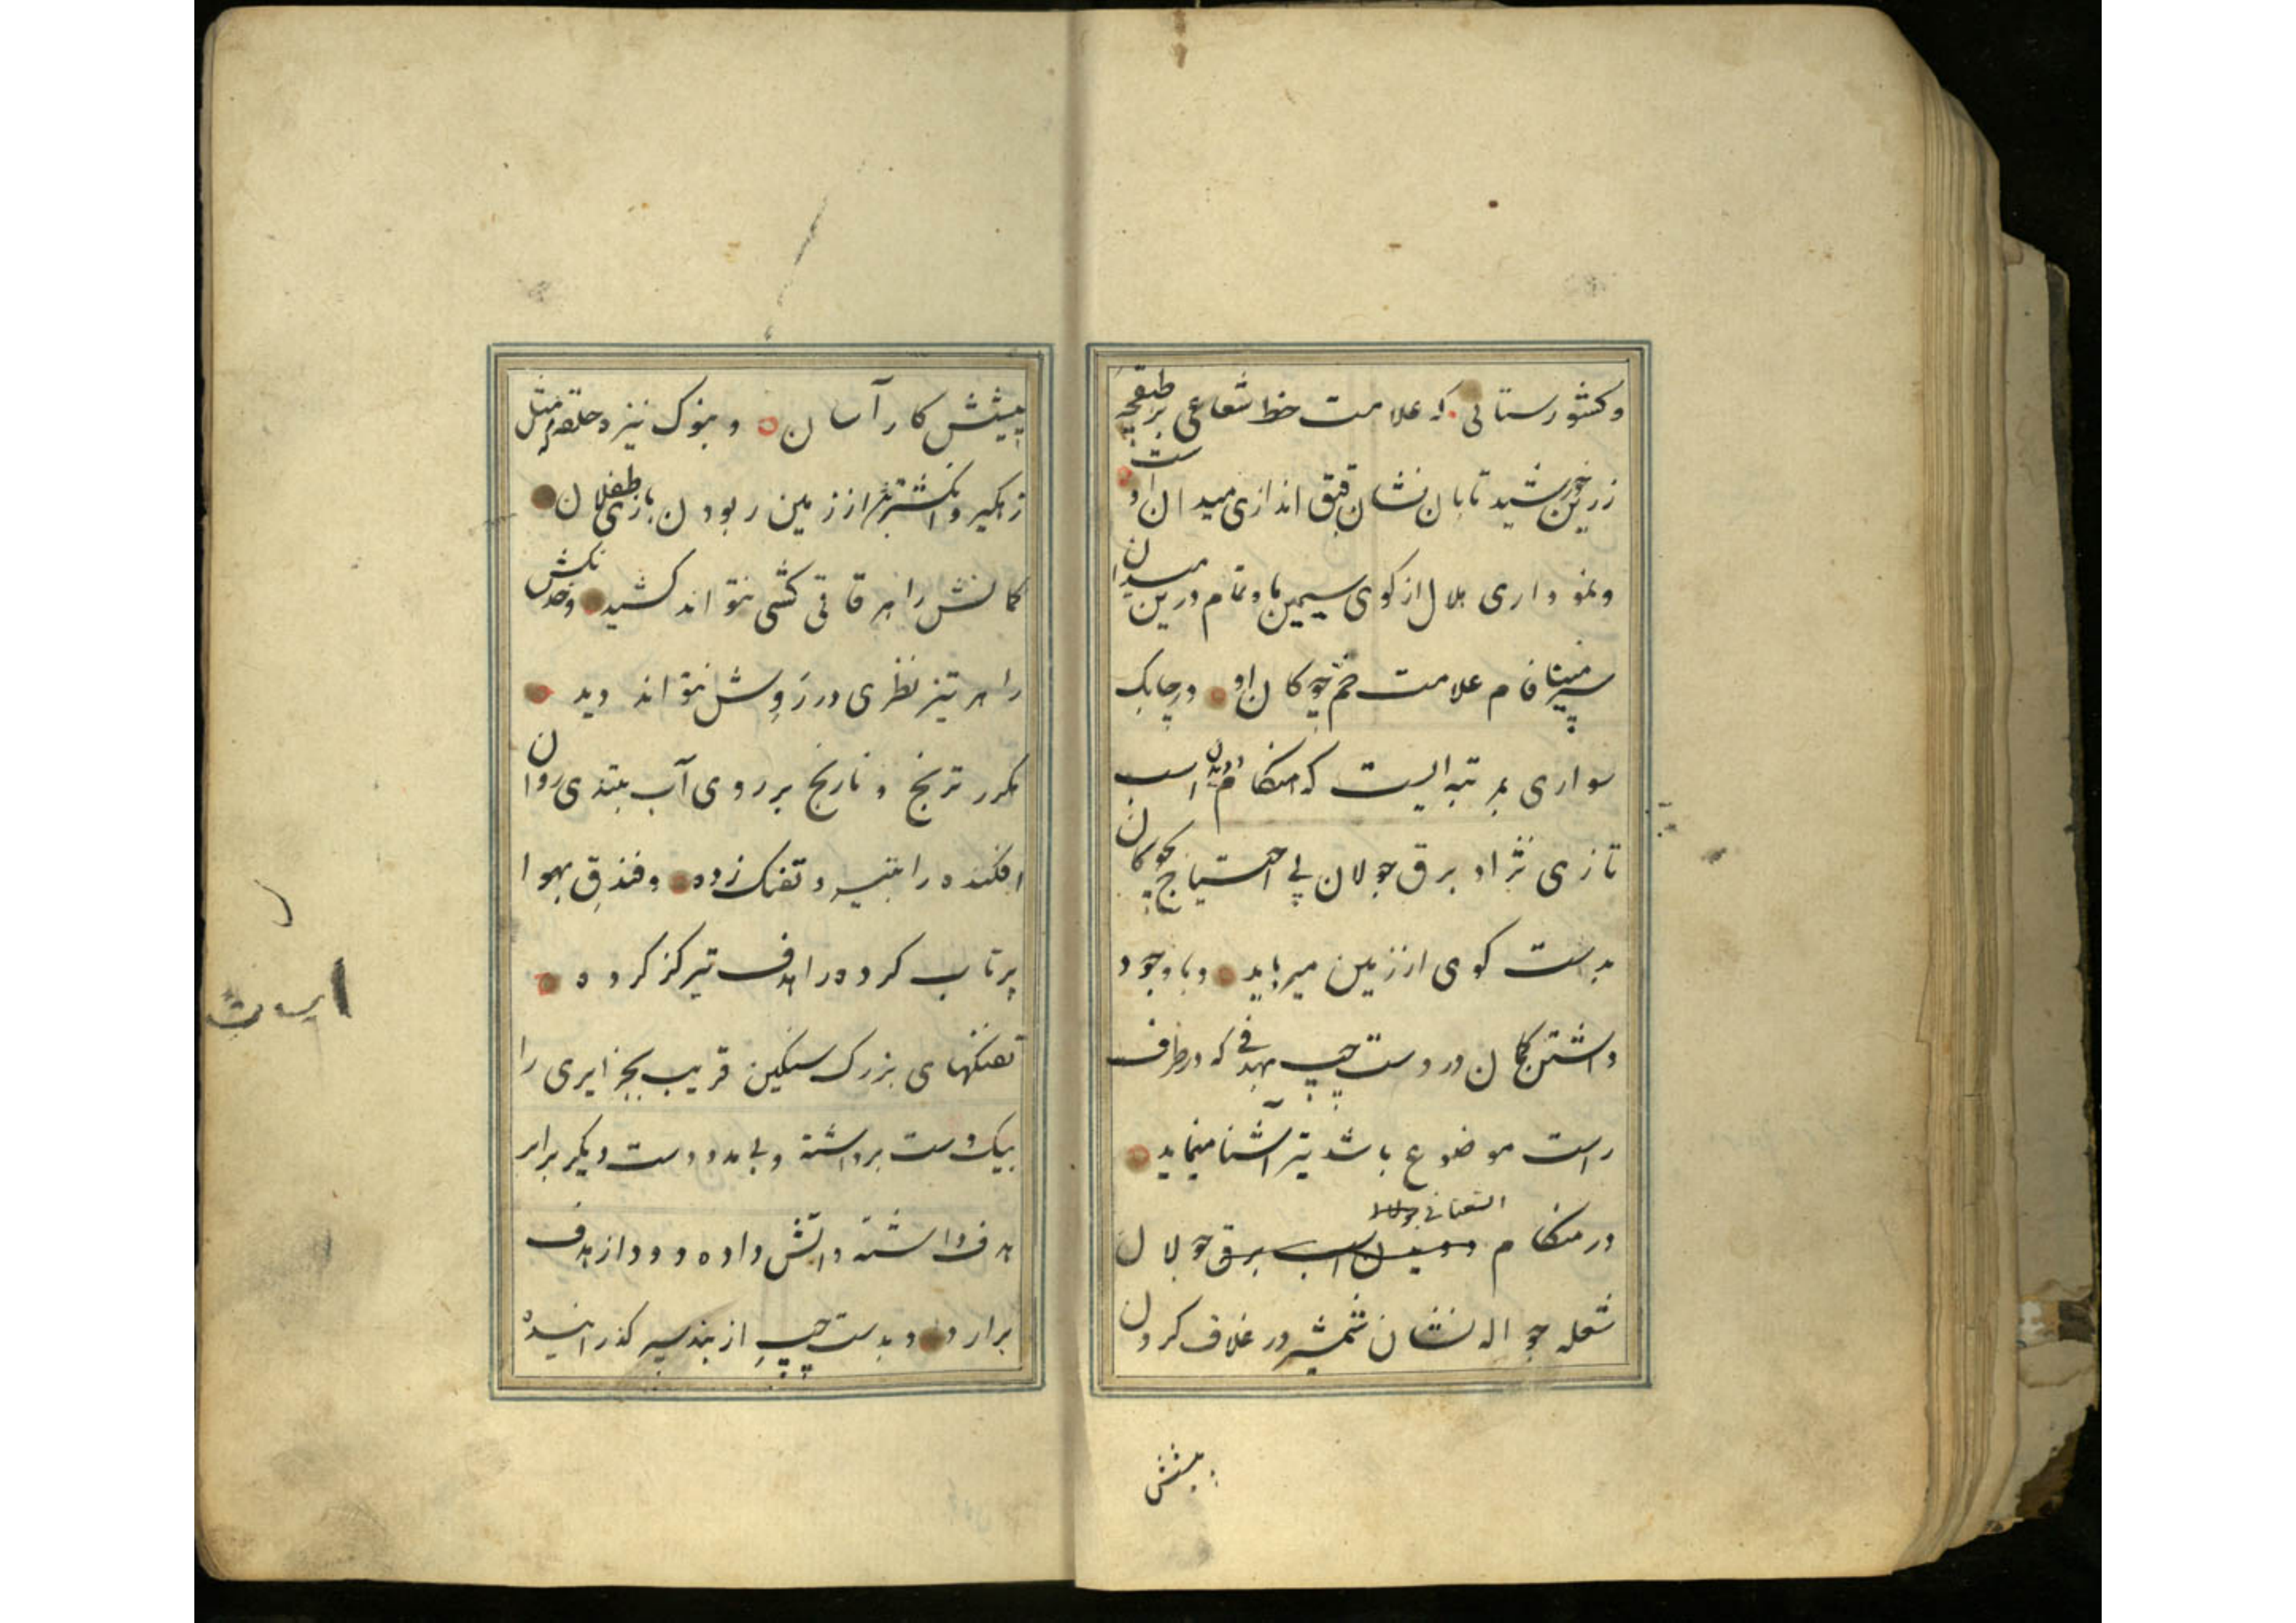 و کشورستانی که علامت خط شعاعی بر طبقچهٔ
زرین خورشید تابان نشان قبق اندازی میدان اوست
و نموداری هلال از کوی سیمین ماه تمام درین میدان
سپهر مینا فام علامت خم چوکان او و در چابک
سواری بمرتبه ایست که هنکام دویدن اسب
تازی نژاد برق جولان بی احتیاج چوکان
بدست کوی از زمین میرباید و با وجود
داشتن کمان در دست چپ بهدفی که در طرف
راست موضوع باشد تیر آشنا مینماید
در هنکام دویدن اسب برق جولان
شعله جواله نشان شمشیر در غلاف کردن
پیشش
پیشش کار آسان و بنوک نیزه حلقهٔ مثل
زهکیر و انکشتر از زمین ربودن بازی طفلان
کمانش را هر قاقی کشی نتواند کشید و خدنکش
را هر تیز نظری در رَوِش نتواند دید
مکرر ترنج و نارنج بر روی آب بتندی روان
افکنده را بتیر و تفنک زده و فندق بهوا
پرتاب کرده را هدف تیر کز کرده
تفنکهای بزرک سنکین قریب بجزایری را
بیکدست برداشته و بی مدد دست دیکر برابر
هدف داشته و آتش داده دود از هدف
برارد و بدست چپ از بند سپر کذرانیده